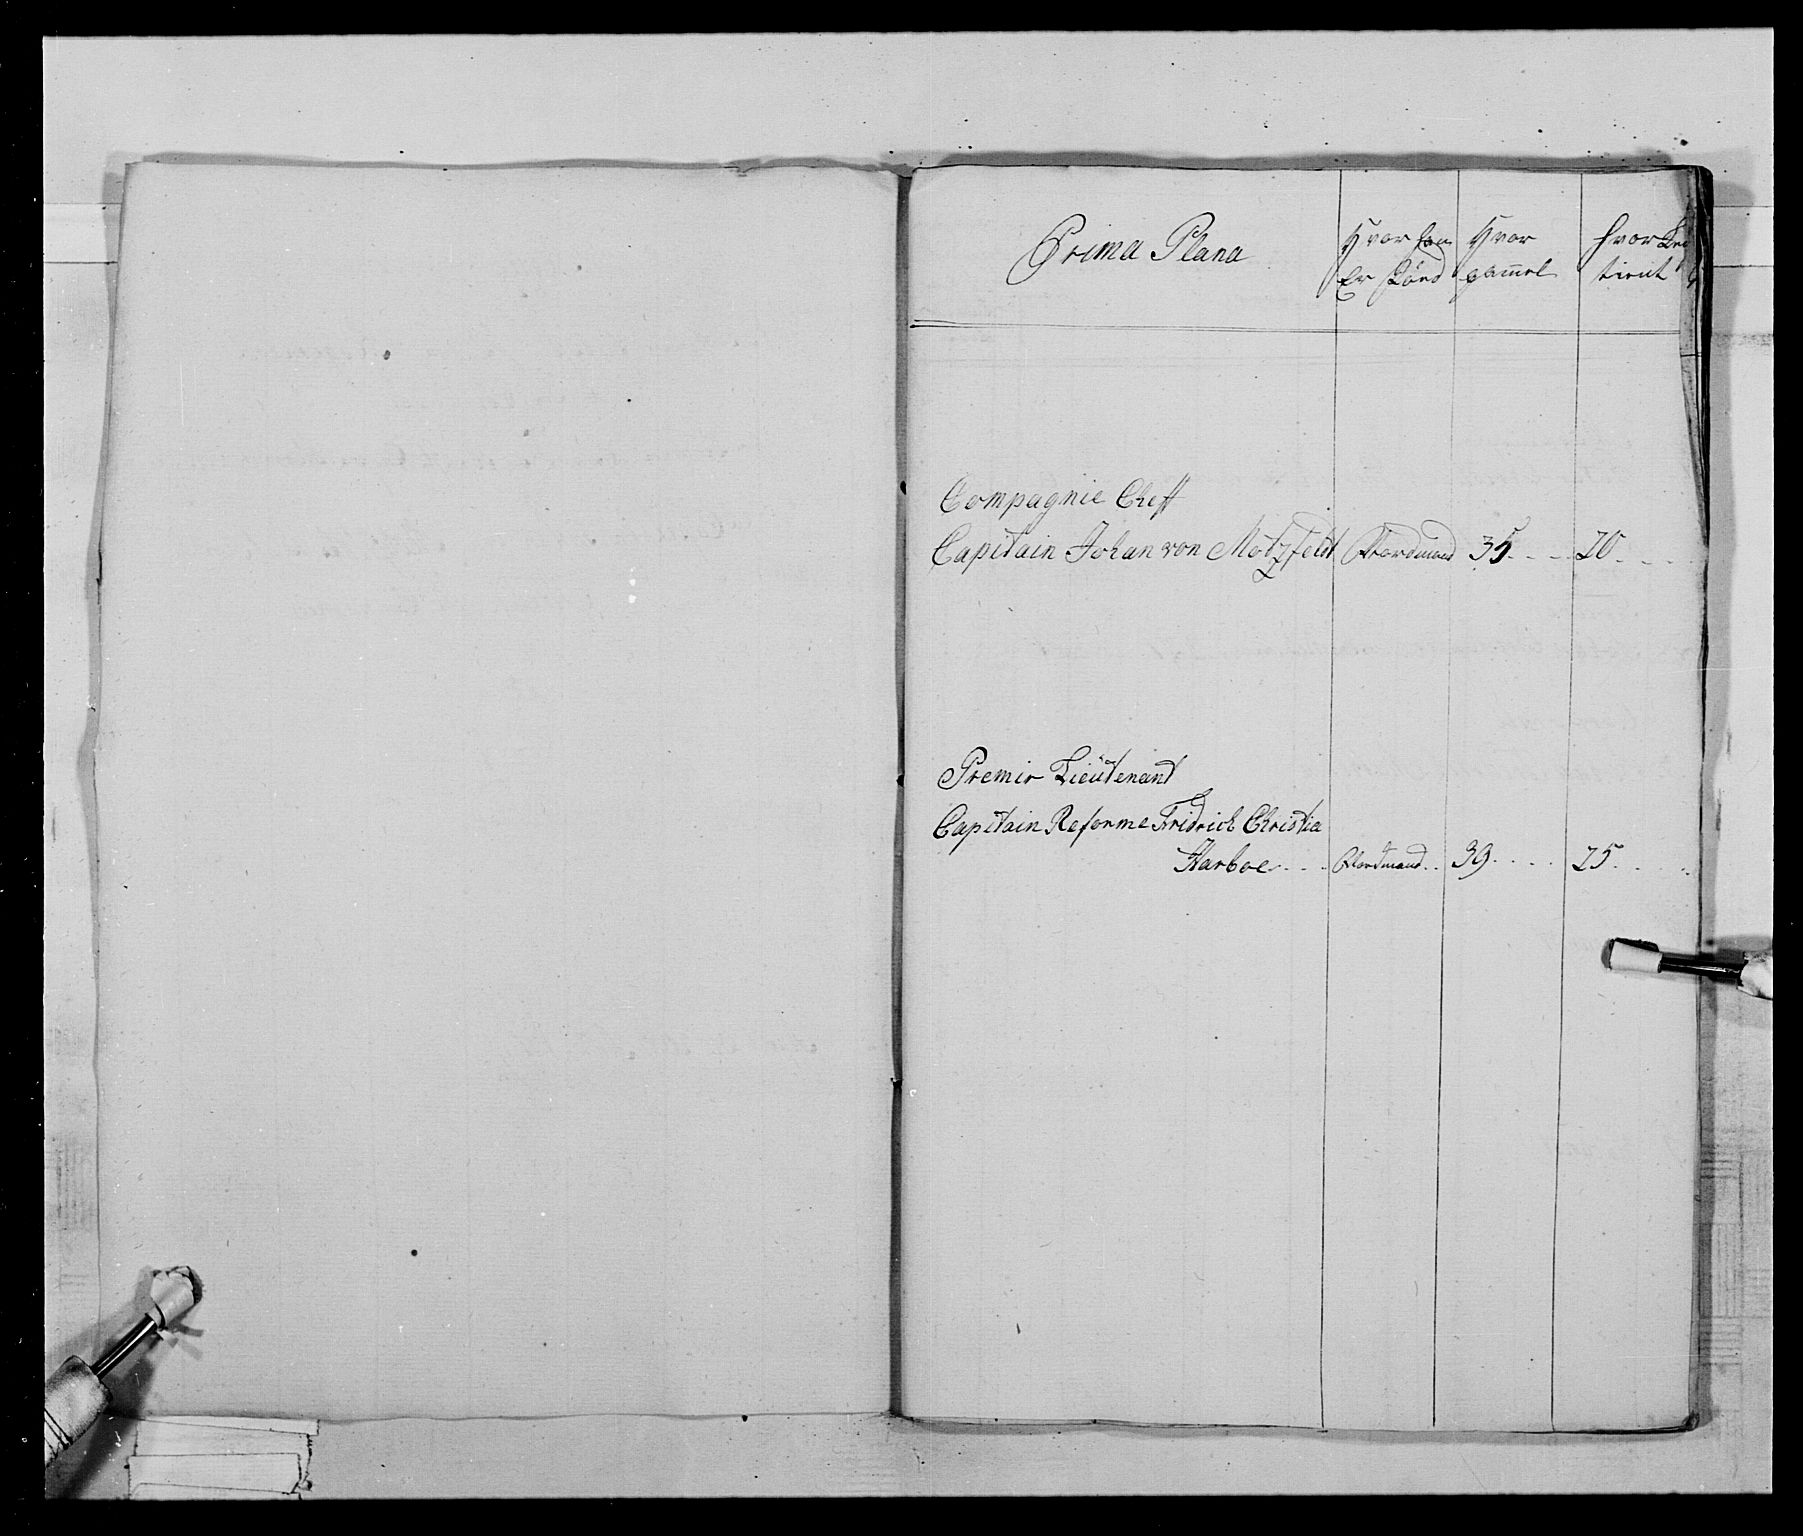 Prima Plana
Hvor han Er Fönd
Hvor gammel
hvor
tient
Compagnie Cheff
Capitain Johan von Motzfeldt Nordmand 35 20
Premir Lieütenant
Capitain Reforme Fridrich Christia
Harboe Nordmand 39 25